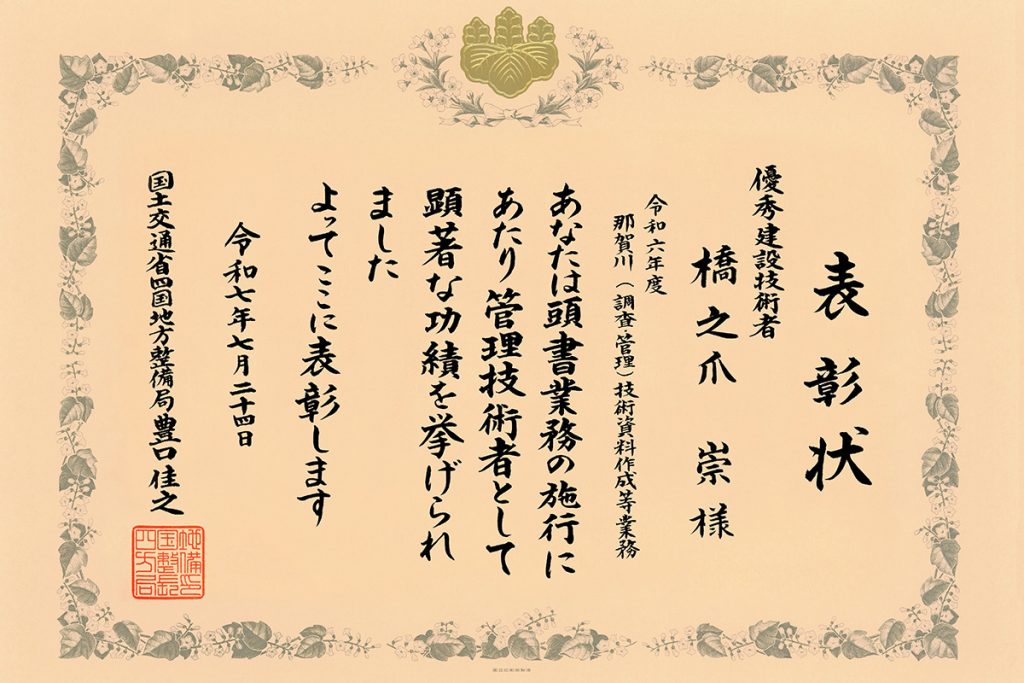 表彰状
優秀建設技術者
橋之爪 崇 様
令和六年度
那賀川(調査・管理)技術資料作成等業務
あなたは頭書業務の施行に
あたり管理技術者として
顕著な功績を挙げられ
ました
よってここに表彰します
令和七年七月二十四日
国土交通省四国地方整備局長 豊口佳之